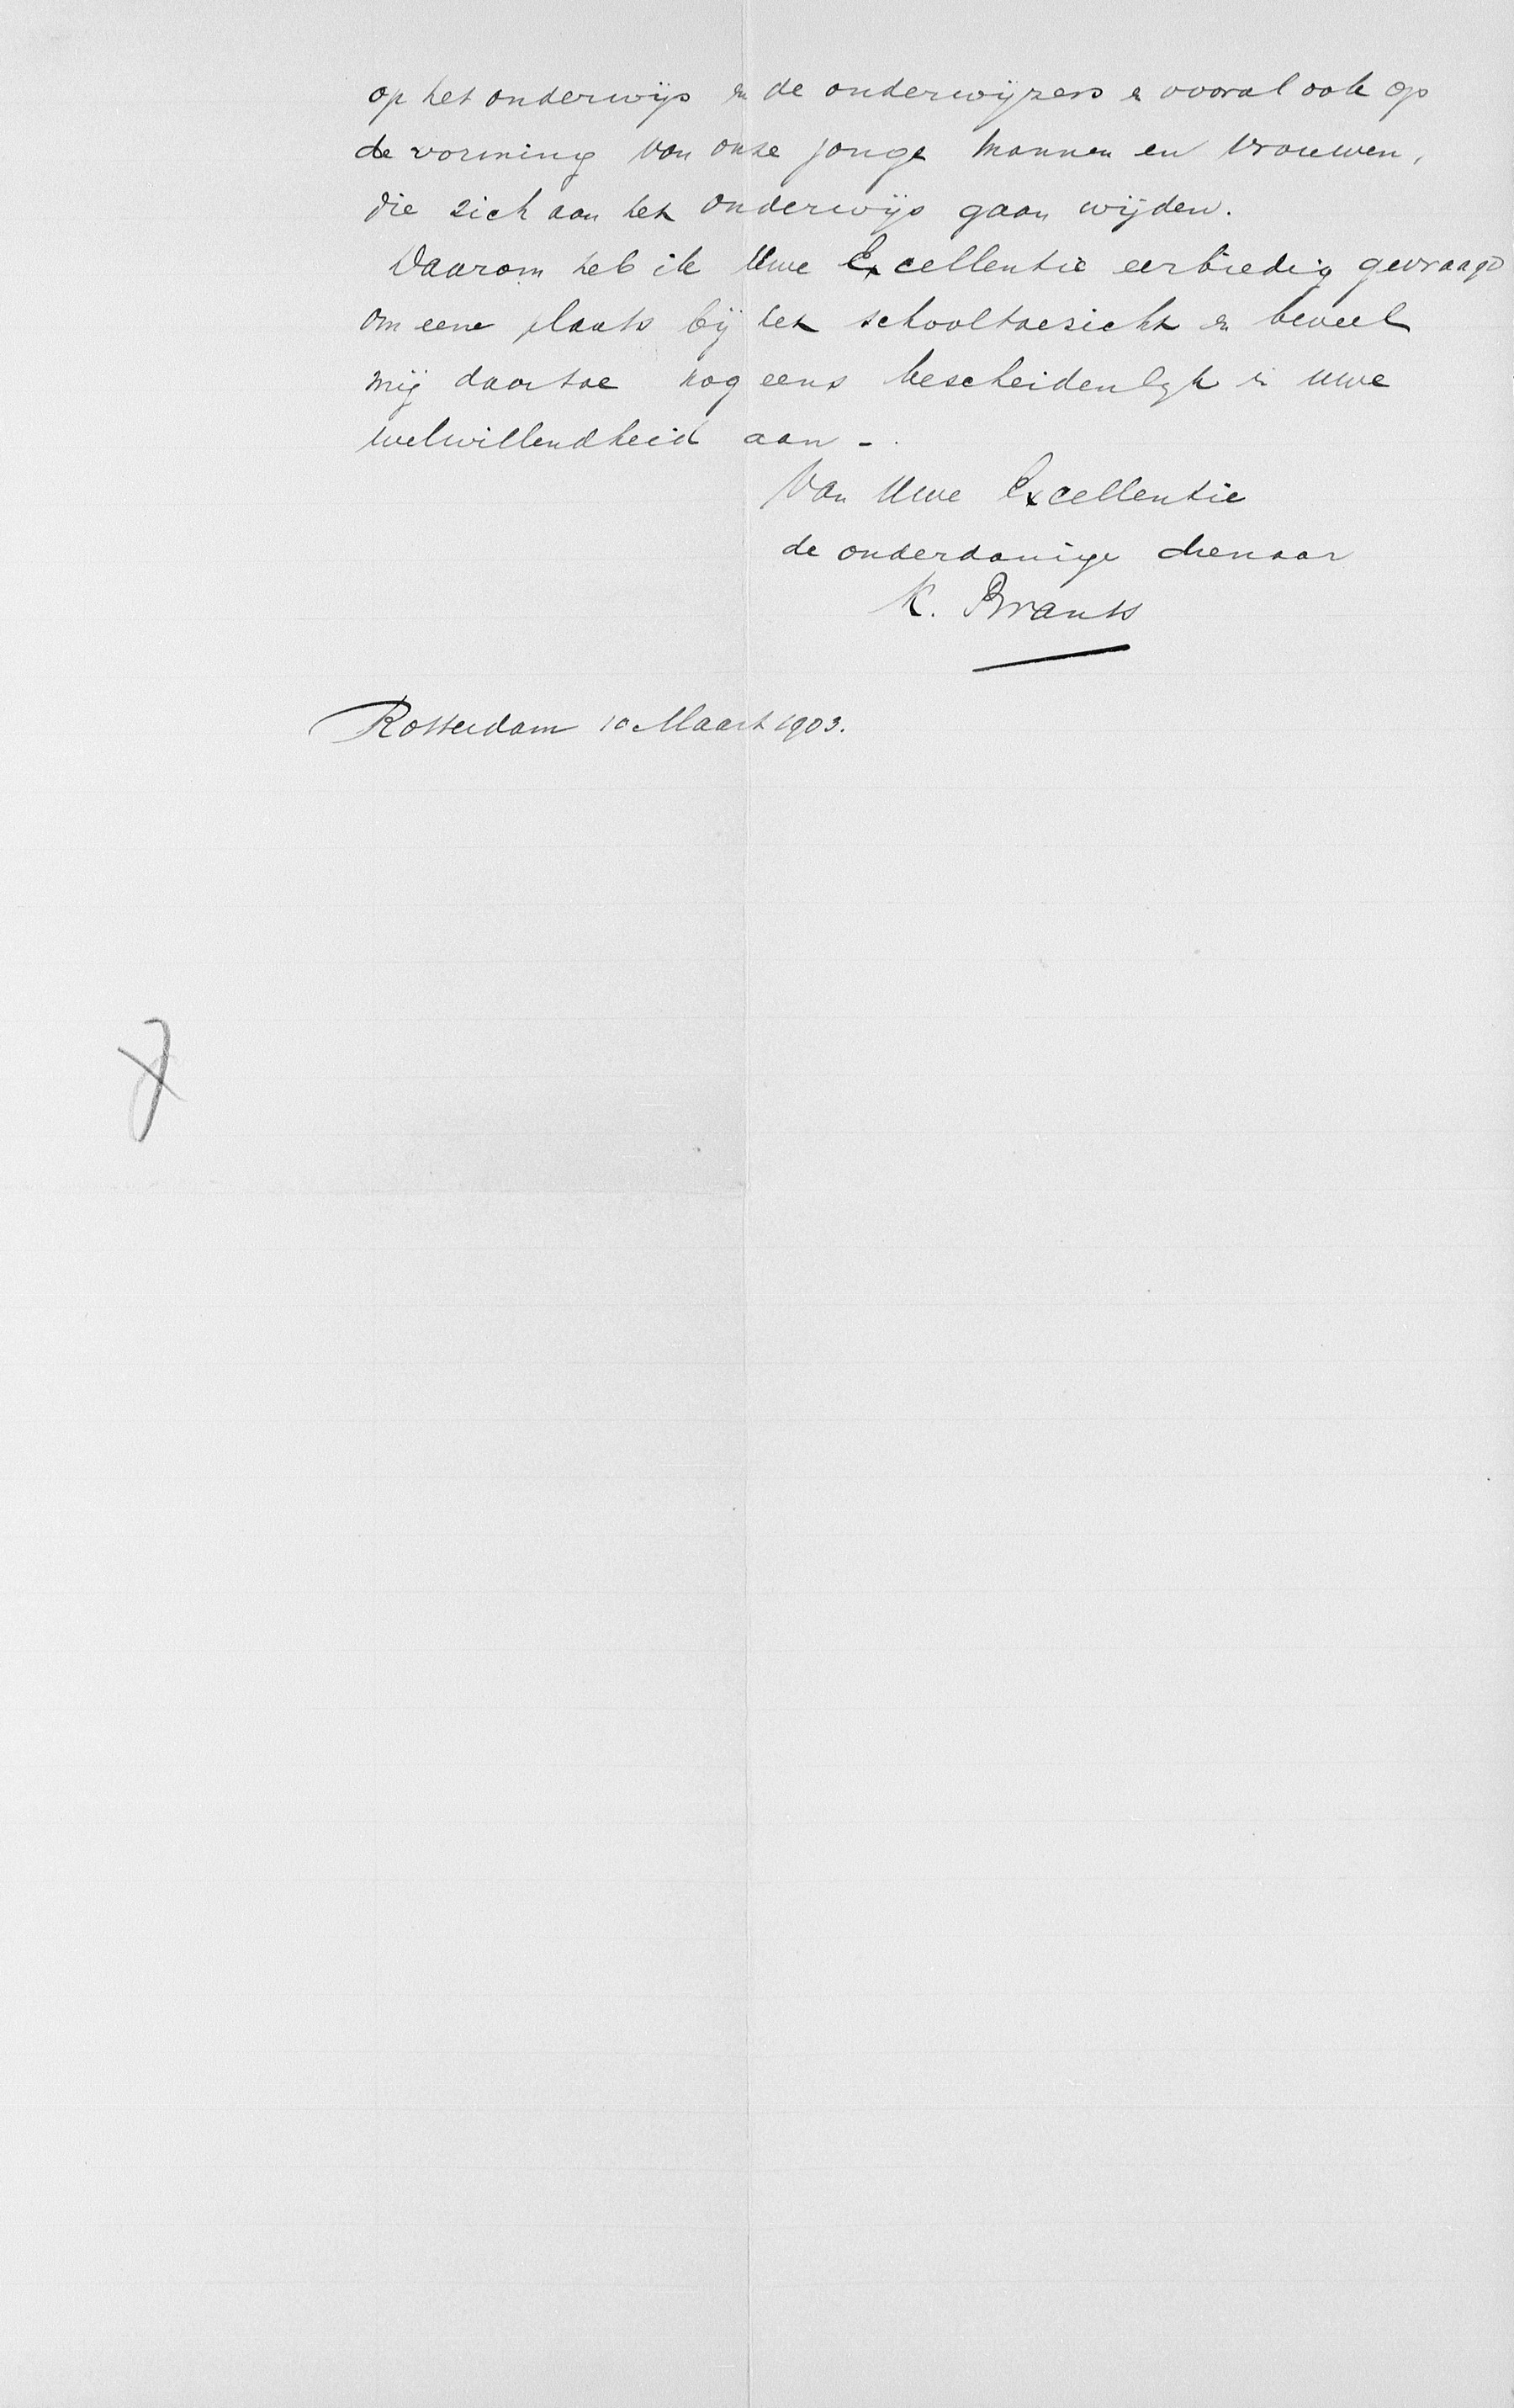 op het onderwijs en de onderwijzers en vooral ook op
de vorming van onze jonge mannen en vrouwen,
die zich aan het onderwijs gaan wijden.
Daarom heb ik Uwe Excellentie eerbiedig gevraagd
om eene plaats bij het schooltoezicht en beveel
mij daartoe nog eens bescheidenlijk in Uwe
welwillendheid aan -.
Van Uwe Excellentie
de onderdanige dienaar
K. Brants
Rotterdam 10 Maart 1903.